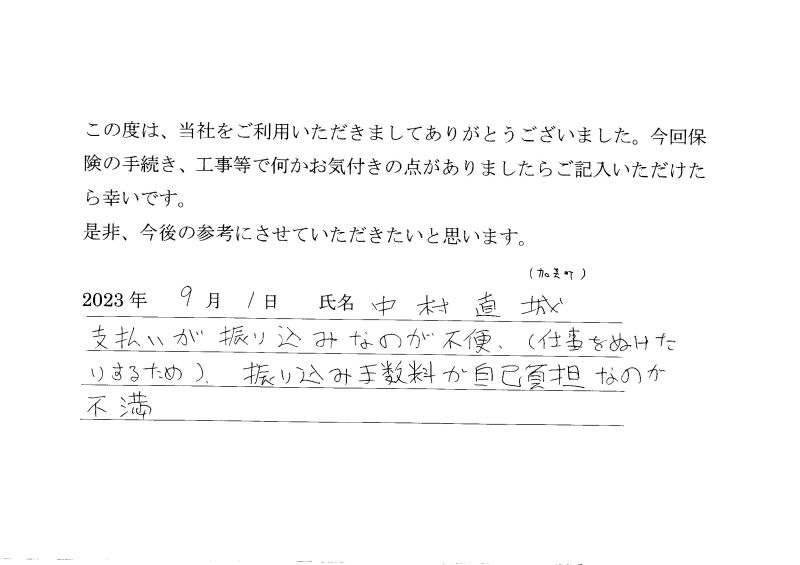 この度は、当社をご利用いただきましてありがとうございました。今回保
険の手続き、工事等で何かお気付きの点がありましたらご記入いただけた
ら幸いです。
是非、今後の参考にさせていただきたいと思います。
(加美町)
2023 年 9 月 1 日 氏名 中村直城
支払いが振り込みなのが不便、(仕事をぬけた
りするため)、振り込み手数料が自己負担なのが
不満